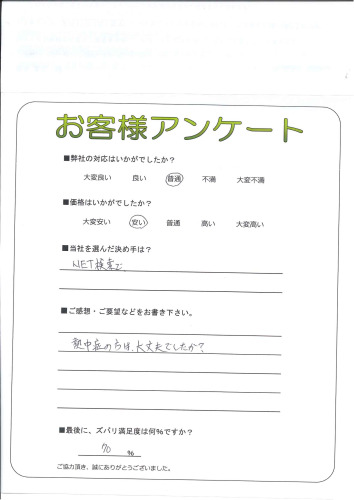 お客様アンケート
■弊社の対応はいかがでしたか？
大変良い 良い 普通 不満 大変不満
■価格はいかがでしたか？
大変安い 安い 普通 高い 大変高い
■当社を選んだ決め手は？
NET検索で
■ご感想・ご要望などをお書き下さい。
熱中症の方は、大丈夫でしたか？
■最後に、ズバリ満足度は何%ですか？
70 %
ご協力頂き、誠にありがとうございました。